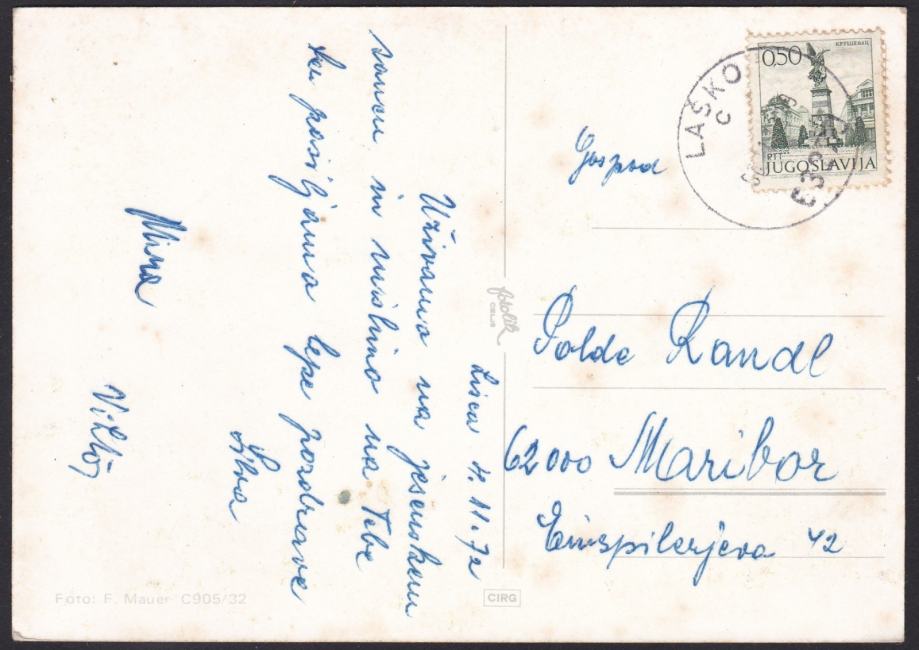 Lisca 4. 11. 72
Uživamo na jesenskem
soncu in mislimo na Tebe
ter pošiljamo lepe pozdrave
Mina
Viktor
Gospod
Polde Randl
62000 Maribor
Einspilerjeva 42
0,50
КРУШЕВАЦ
PTT
JUGOSLAVIJA
LAŠKO
fotolik
CELJE
CIRG
Foto: F. Mauer C905/32